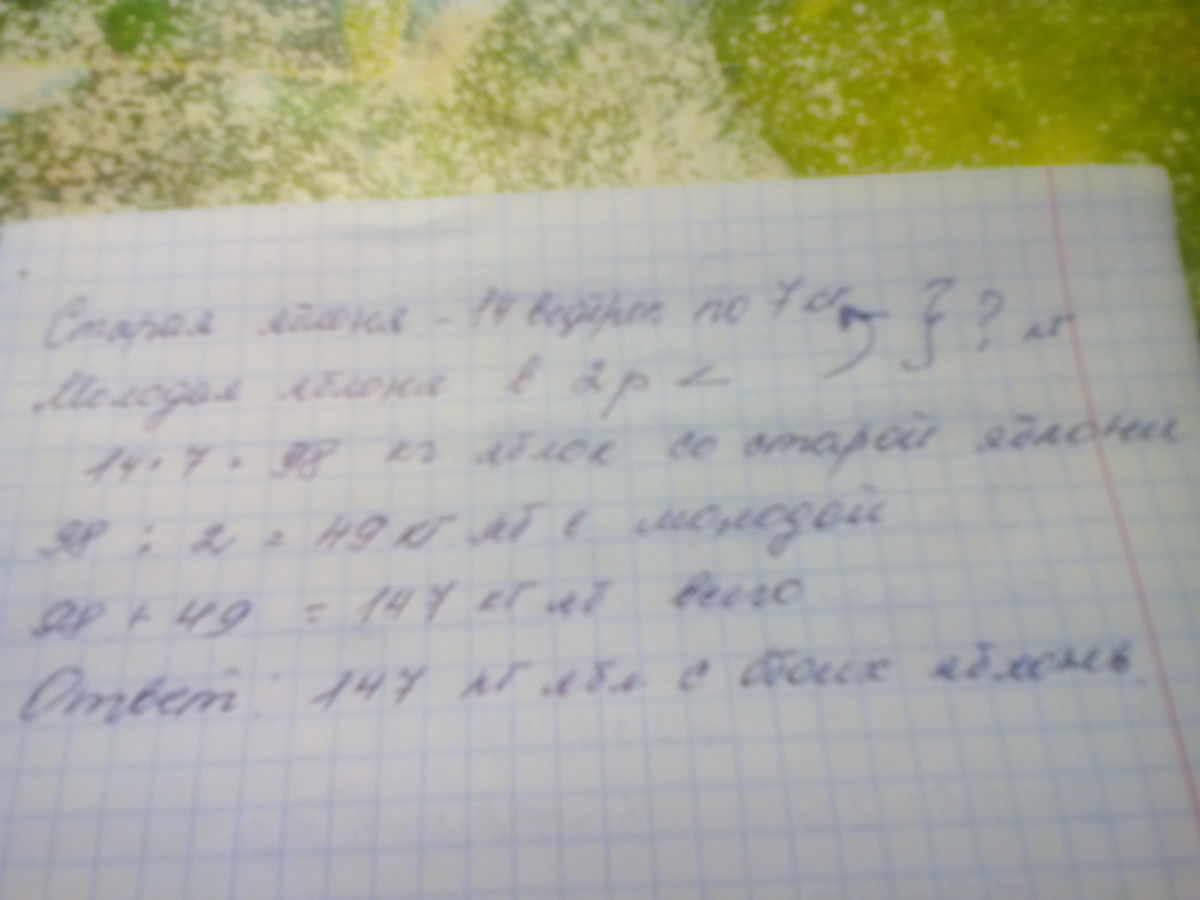 Старая яблоня - 14 ведрос по 7 кг } ? кг
Молодая яблоня в 2 р <
14 • 7 = 98 кг яблок со старой яблони
98 : 2 = 49 кг яб с молодой
98 + 49 = 147 кг яб всего
Ответ: 147 кг ябл с обоих яблонь.